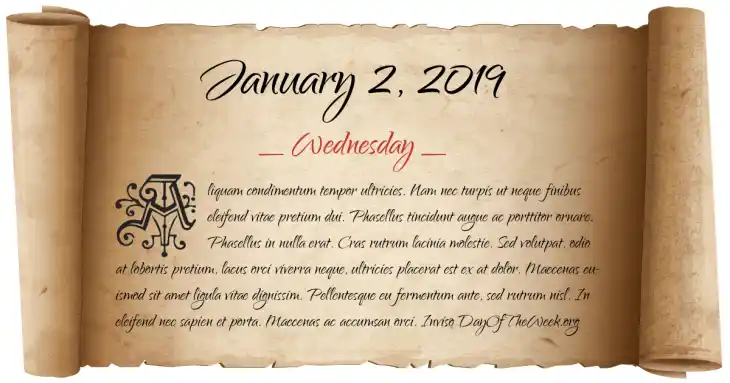 January 2, 2019
_ Wednesday _
Aliquam condimentum tempor ultricies. Nam nec turpis ut neque finibus
eleifend vitae pretium dui. Phasellus tincidunt augue ac porttitor ornare.
Phasellus in nulla erat. Cras rutrum lacinia molestie. Sed volutpat, odio
at lobortis pretium, lacus orci viverra neque, ultricies placerat est ex at dolor. Maecenas eu-
ismod sit amet ligula vitae dignissim. Pellentesque eu fermentum ante, sed rutrum nisl. In
eleifend nec sapien et porta. Maecenas ac accumsan orci. Invise DayOfTheWeek.org